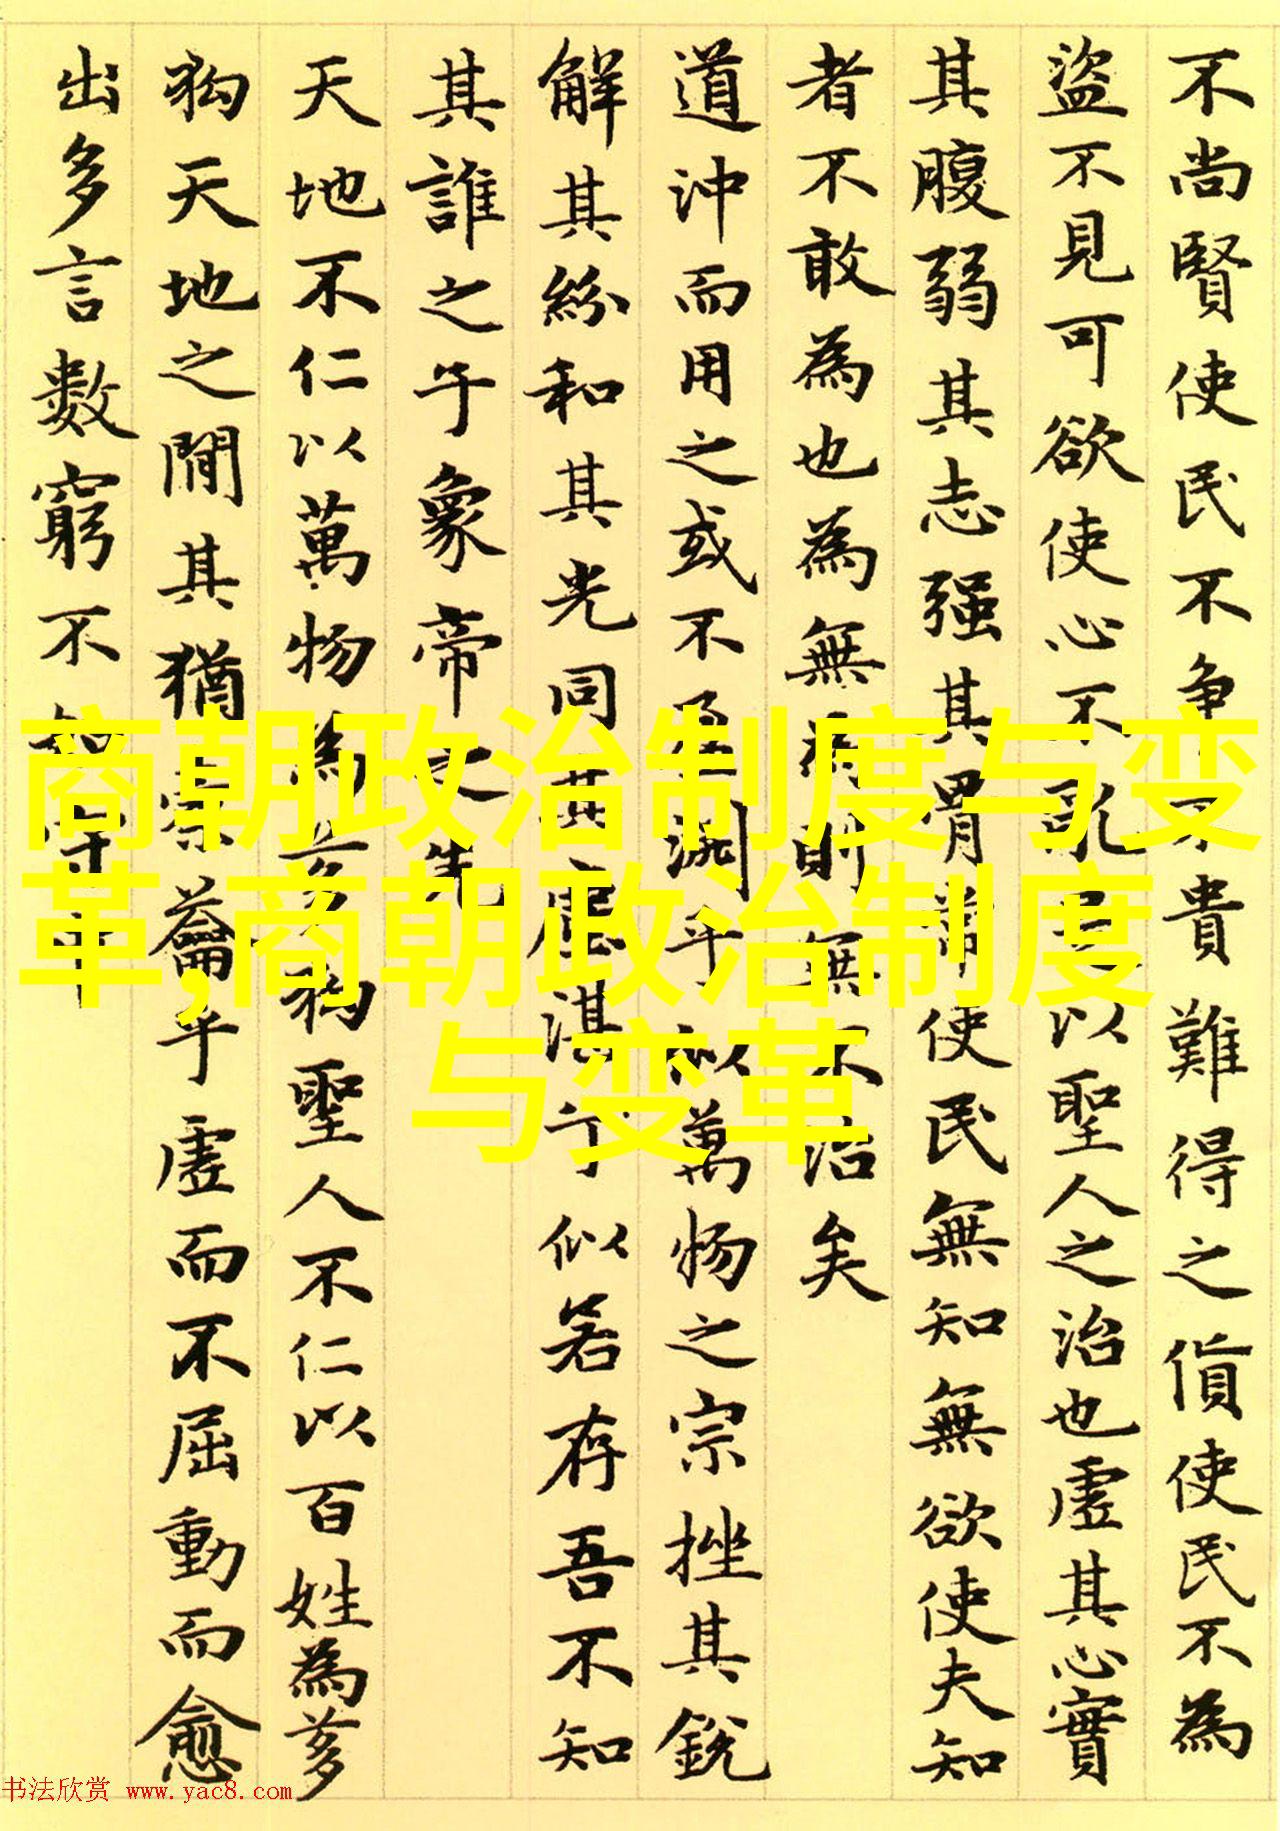 不尚賢使民不争不貴難得之貨使民不為
盜不見可欲使心不亂是以聖人之治也虛其心實
其腹弱其志强其骨常使民無知無欲使夫知
者不敢為也為無為則無不治矣
道沖而用之或不盈淵乎似萬物之宗挫其銳
解其紛和其光同其塵湛乎似若存吾不知
其誰之子象帝之先
天地不仁以萬物為芻狗聖人不仁以百姓為芻
狗天地之間其猶橐籥乎虛而不屈動而愈
出多言數窮不如守中
商朝政治制度与变
革,商朝政治制度
与变革
书法欣赏 www.yac8.com